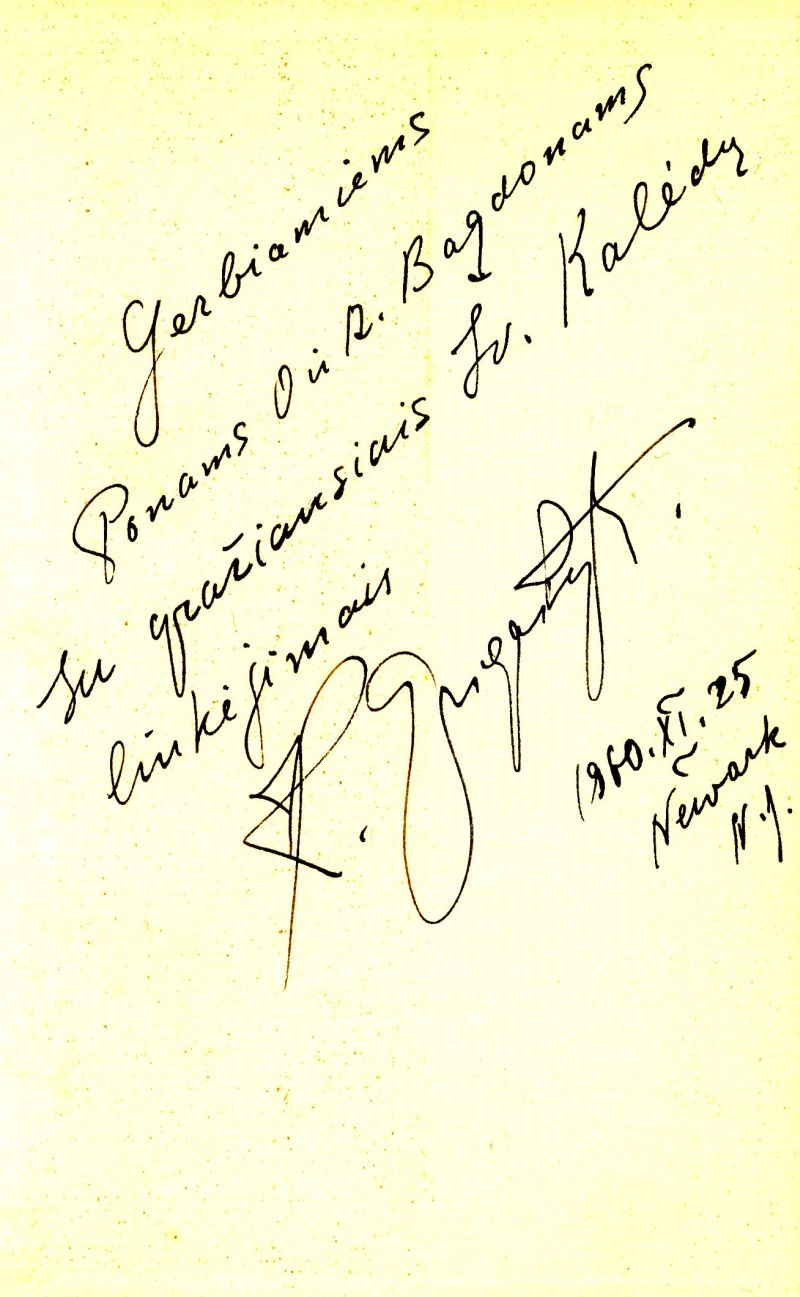 Gerbiamiems
Ponams O ir R. Bagdonams
Su gražiausiais Šv. Kalėdų
linkėjimais
K. Grigaityt.
1960.XI.25
Newark
N.J.